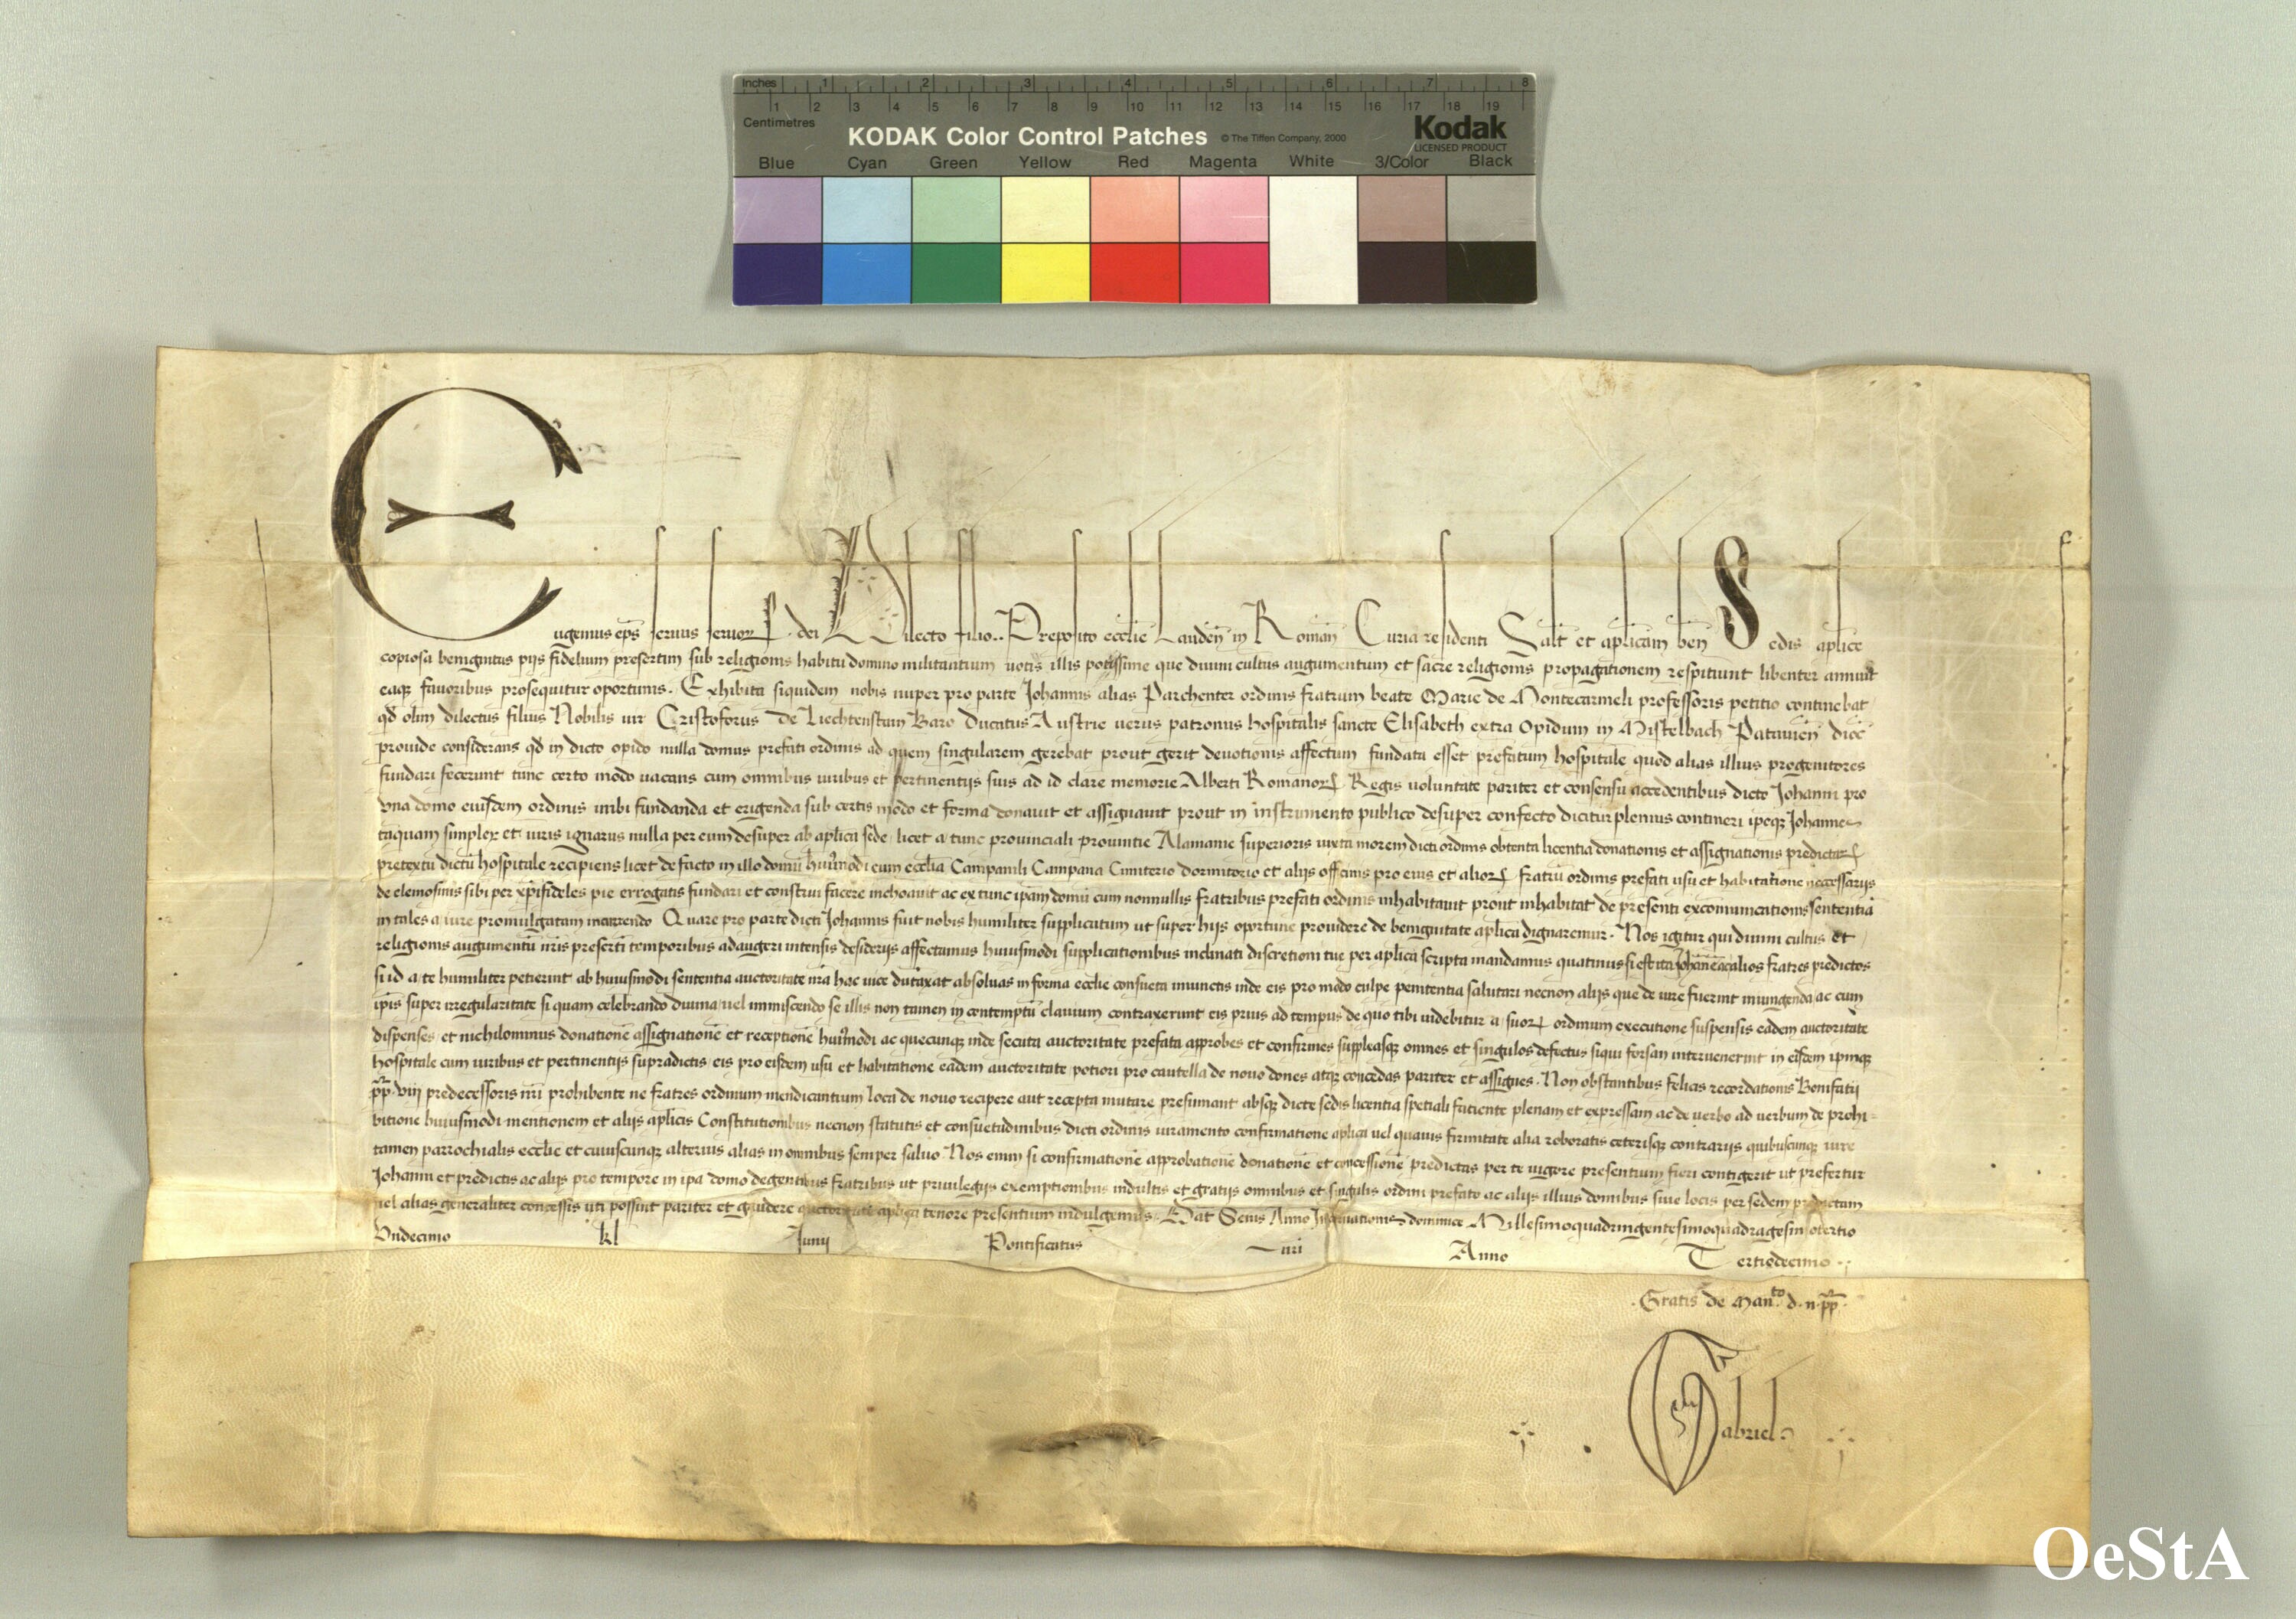 Inches 1 2 3 4 5 6 7 8
1 2 3 4 5 6 7 8 9 10 11 12 13 14 15 16 17 18 19
Centimetres
KODAK Color Control Patches © The Tiffen Company, 2000 Kodak
LICENSED PRODUCT
Blue Cyan Green Yellow Red Magenta White 3/Color Black
Eugenius ep̄s seruus seruoꝝ dei Dilecto filio .. Preposito eccl̄ie Lauden̄ in Roman̄ Curia residenti Salt̄ et apl̄icam ben̄ Sedis apl̄ice
copiosa benignitas pijs fidelium presertim sub religionis habitu domino militantium votis illis potissime que diuini cultus augumentum et sacre religionis propagationem respitiunt libenter annuit
eaqꝫ fauoribus prosequitur oportunis. Exhibita siquidem nobis nuper pro parte Johannis alias Parchenter ordinis fratrum beate Marie de Montecarmeli professoris petitio continebat
qd̄ olim dilectus filius Nobilis uir Cristoforus de Liechtenstain Baro Ducatus Austrie uerus patronus hospitalis sancte Elisabeth extra Opidum in Mistelbach Patauien̄ dioc̄
prouide considerans qd̄ in dicto opido nulla domus prefati ordinis ad quem singularem gerebat prout gerit deuotionis affectum fundata esset prefatum hospitale quod alias illius progenitores
fundari fecerunt tunc certo modo uacans cum omnibus iuribus et pertinentijs suis ad id clare memorie Alberti Romanoꝝ Regis uoluntate pariter et consensu accedentibus dicto Johanni pro
una domo eiusdem ordinis inibi fundanda et erigenda sub certis modo et forma donauit et assignauit prout in instrumento publico desuper confecto dicitur plenius contineri ipeqꝫ Johannes
tāquam simplex et iuris ignarus nulla per eum desuper ab apl̄ica sede licet a tunc prouinciali prouintie Alamanie superioris iuxta morem dicti ordinis obtenta licentia donationis et assignationis predictaꝝ
pretextu dictū hospitale recipiens licet de facto in illo domū hui9modi cum eccl̄ia Campanili Campana Cimiterio Dormitorio et alijs officinis pro eius et alioꝝ fratrū ordinis prefati usu et habitatione necessarijs
de elemosinis sibi per xp̄ifideles pie errogatis fundari et construi facere inchoauit ac ex tunc ip̄am domū cum nonnullis fratribus prefati ordinis inhabitauit prout inhabitat de presenti excōmunicationis sententiā
in tales a iure promulgatam incurrendo Quare pro parte dicti Johannis fuit nobis humiliter supplicatum ut super hijs oportune prouidere de benignitate apl̄ica dignaremur. Nos igitur qui diuini cultus et
religionis augumentū nr̄is presertī temporibus adaugeri intensis desiderijs affectamus huiusmodi supplicationibus inclinati discretioni tue per apl̄ica scripta mandamus quatinus si est ita Johannē ac alios fratres predictos
si id a te humiliter petierint ab huiusmodi sententia auctoritate nr̄a hac uice dūtaxat absoluas in forma eccl̄ie consueta iniunctis inde eis pro modo culpe penitentia salutari necnon alijs que de iure fuerint iniungenda ac cum
ip̄is super irregularitate si quam celebrando diuina uel inmiscendo se illis non tamen in contemptū clauium contraxerunt eis prius ad tempus de quo tibi uidebitur a suoꝝ ordinum executione suspensis eadem auctoritate
dispenses et nichilominus donationē assignationē et receptionē hui9modi ac quecunqꝫ inde secuta auctoritate prefata approbes et confirmes suppleasqꝫ omnes et singulos defectus siqui forsan interuenerint in eisdem ipmqꝫ
hospitale cum iuribus et pertinentijs supradictis eis pro eisdem usu et habitatione eadem auctoritate potiori pro cautella de nouo dones atqꝫ concedas pariter et assignes. Non obstantibus felicis recordationis Bonifatij
pp̄. viij predecessoris nr̄i prohibente ne fratres ordinum mendicantium loca de nouo recipere aut recepta mutare presumant absqꝫ dicte sedis licentia spetiali fatiente plenam et expressam ac de uerbo ad uerbum de prohi-
bitione huiusmodi mentionem et alijs apl̄icis Constitutionibus necnon statutis et consuetudinibus dicti ordinis iuramento confirmatione apl̄ica uel quauis firmitate alia roboratis ceterisqꝫ contrarijs quibuscunqꝫ iure
tamen parrochialis eccl̄ie et cuiuscunqꝫ alterius alias in omnibus semper saluo Nos enim si confirmationē approbationē donationē et concessionē predictas per te uigore presentium fieri contigerit ut prefertur
Johanni et predictis ac alijs pro tempore in ip̄a domo degentibus fratribus ut priuilegijs exemptionibus indultis et gratijs omnibus et singulis ordini prefato ac alijs illius domibus siue locis per sedem predictam
uel alias generaliter concessis uti possint pariter et gaudere auctoritate apl̄ica tenore presentium indulgemus. Dat̄ Senis Anno Incarnationis dominice Millesimoquadringentesimoquadragesimotertio
Undecimo kl Junij Pontificatus nr̄i Anno Tertiodecimo ..
. Gratis de Manᵗᵒ d. n. pp̄ .
Gabriel
OeStA